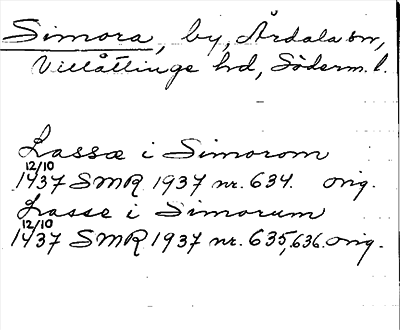 Simora, by, Årdala sn,
Villåttinge hd, Söderm. l.
Lassæ i Simorom
12/10
1437 SMR 1937 nr. 634. orig.
Lasse i Simorum
12/10
1437 SMR 1937 nr. 635, 636. orig.